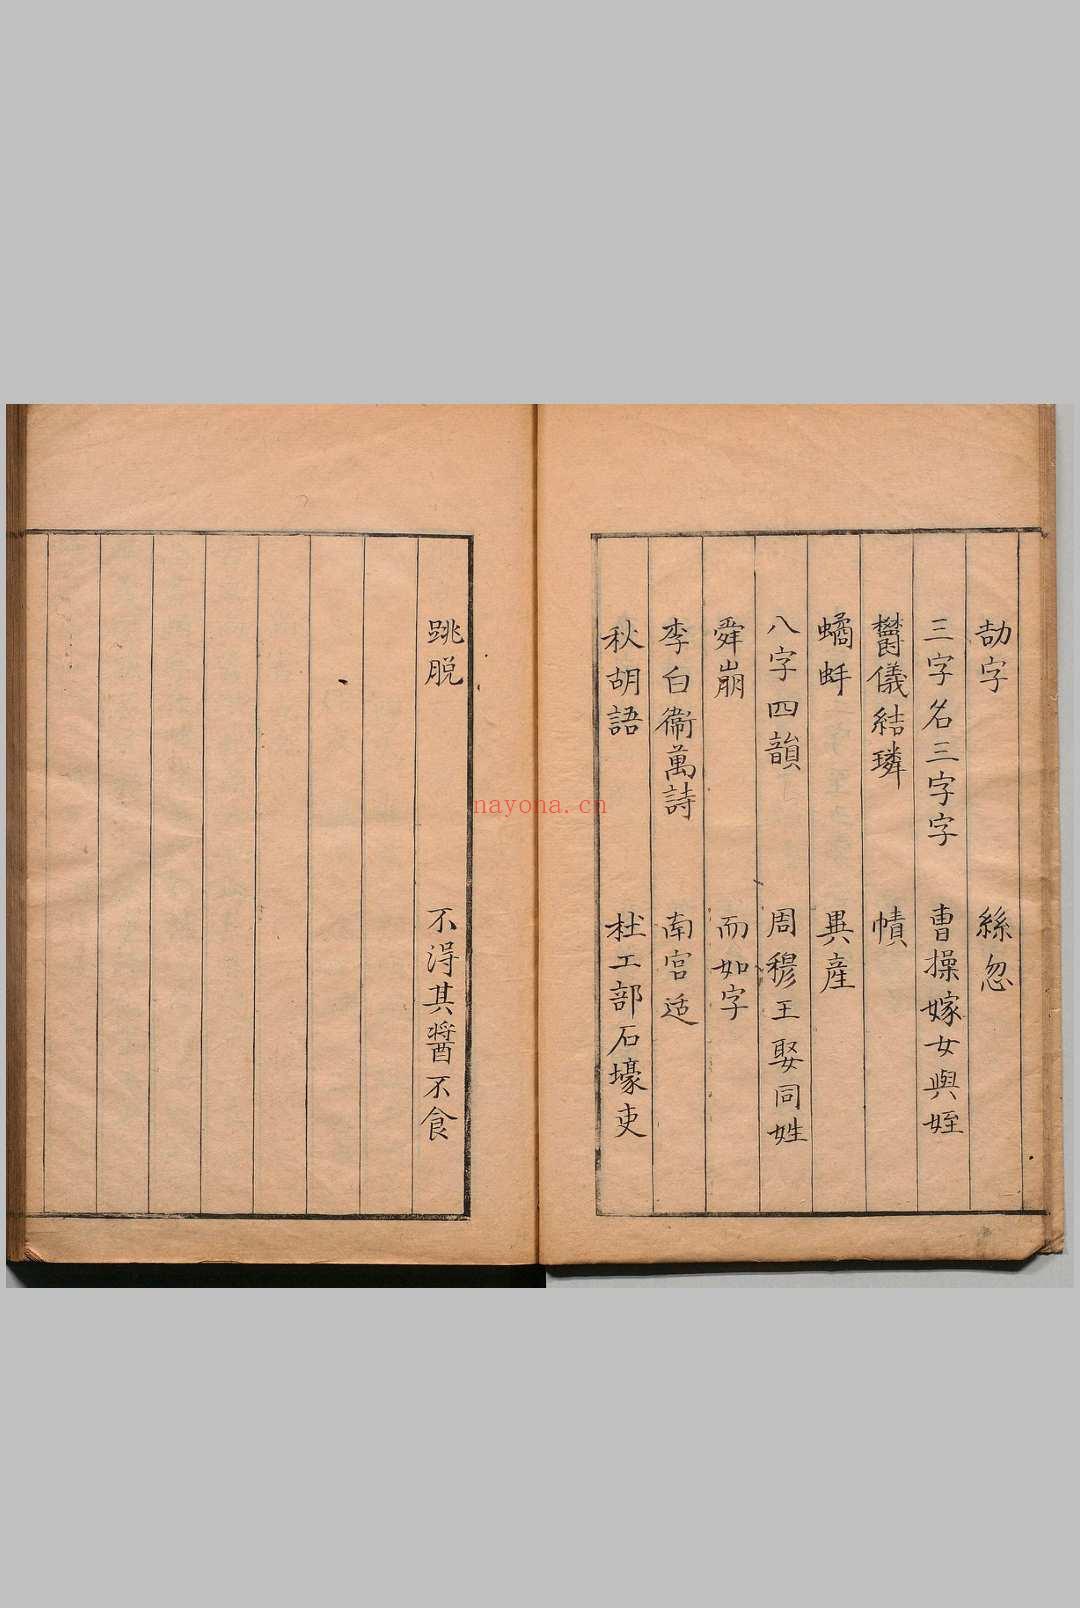 劼字 絲忽
三字名三字字 曹操嫁女與姪
鬱儀結璘 幘
蟠蚌 異產
八字四韻 周穆王娶同姓
舜崩 而如字
李白衛萬詩 南宮适
秋胡語 杜工部石壕吏
跳脱 不得其醬不食
nayona.cn